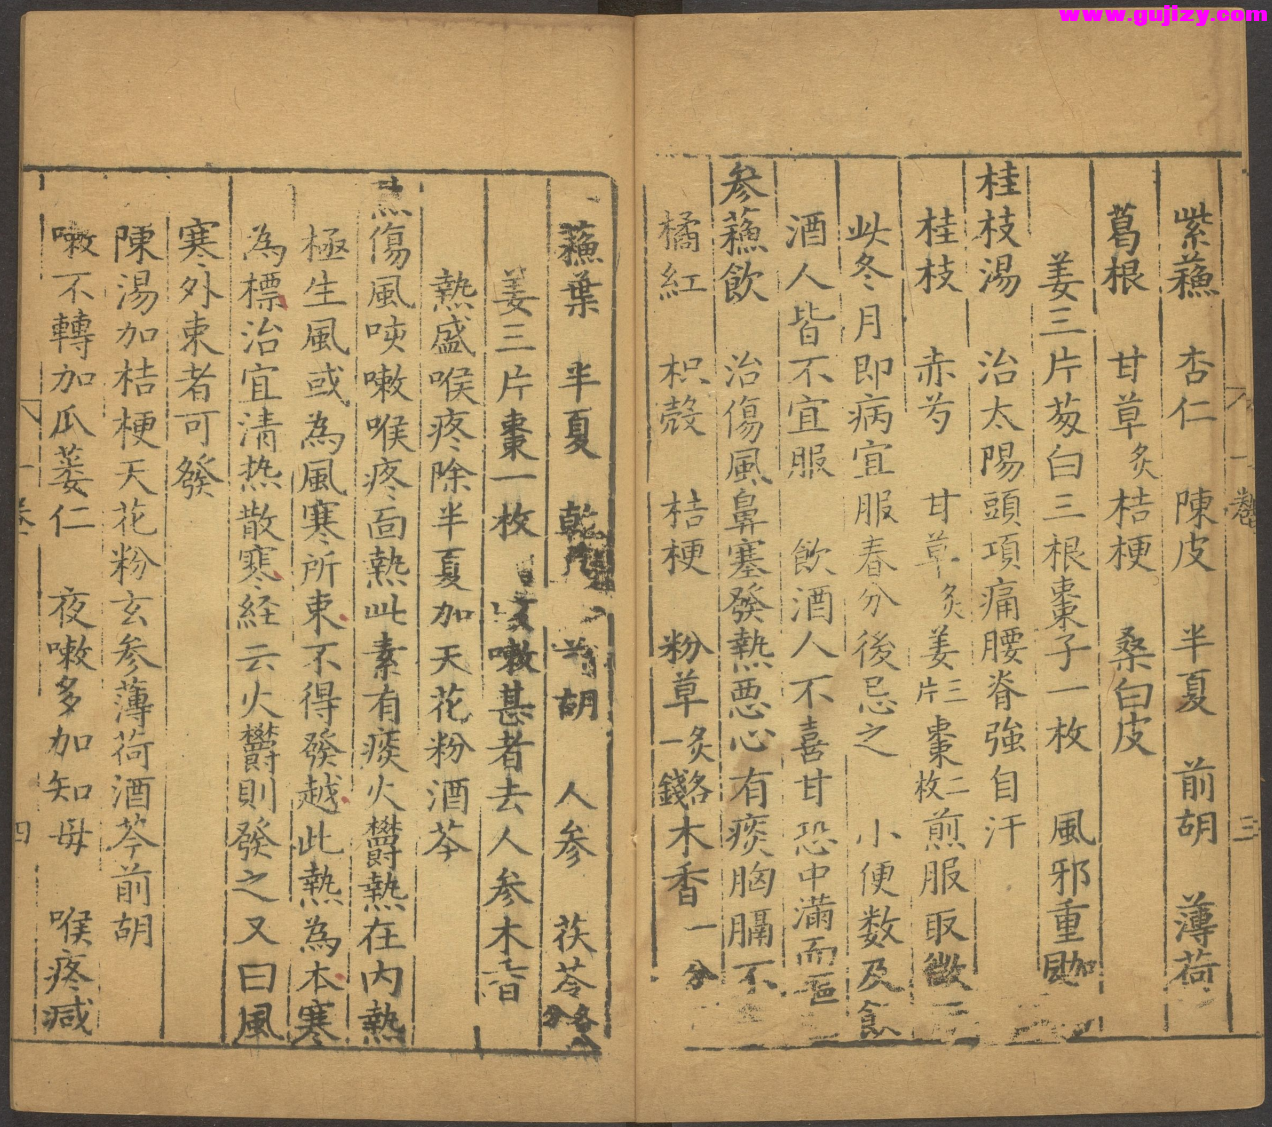 www.gujizy.com
紫蘓 杏仁 陳皮 半夏 前胡 薄荷
葛根 甘草炙 桔梗 桑白皮
姜三片葱白三根棗子一枚 風邪重加
桂枝湯 治太陽頭項痛腰脊強自汗
桂枝 赤芍 甘草炙 姜三片 棗二枚 煎服取微
此冬月即病宜服春分後忌之 小便数及飮
酒人皆不宜服 飮酒人不喜甘恐中滿而嘔
參蘓飲 治傷風鼻塞發熱惡心有痰胸膈不
橘紅 枳殼 桔梗 粉草炙各一錢 木香一分
蘓葉 半夏 乾 前胡 人參 茯苓各 分
姜三片棗一枚 嗽甚者去人參木香
熱盛喉疼除半夏加天花粉酒芩
熱傷風咳嗽喉疼面熱此素有痰火欝熱在內熱
極生風或為風寒所束不得發越此熱為本寒
為標治宜清热散寒経云火欝則發之又曰風
寒外束者可發
陳湯加桔梗天花粉玄參薄荷酒芩前胡
嗽不轉加瓜蒌仁 夜嗽多加知毋 喉疼减
卷一
三
四